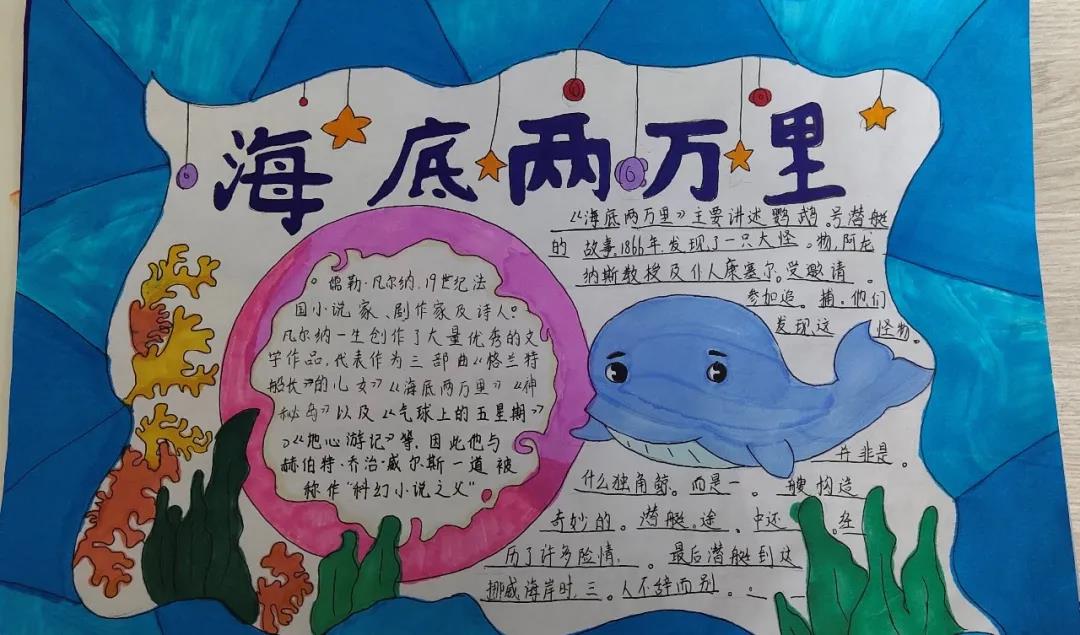 海底两万里
儒勒·凡尔纳,19世纪法
国小说家、剧作家及诗人。
凡尔纳一生创作了大量优秀的文
学作品,代表作为三部曲《格兰特
船长》的儿女》《海底两万里》《神
秘岛》以及《气球上的五星期》
》《地心游记》等,因此他与
赫伯特·乔治·威尔斯一道被
称作“科幻小说之父”。
《海底两万里》主要讲述鹦鹉。号潜艇
的故事,1866年,发现了一只大怪。物,阿龙
纳斯教授及仆人康塞尔。受邀请
参加追。捕。他们
发现这怪物。
并非是。
什么独角鲸。而是一。艘构造
奇妙的。潜艇。途。中还。经
历了许多险情,。最后潜艇到达
挪威海岸时,三。人不辞而别。